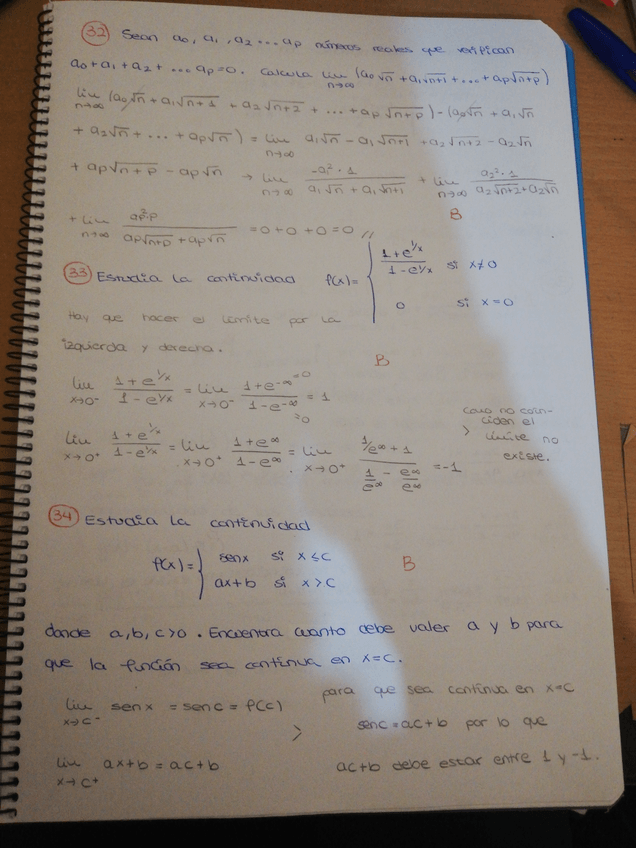 32 Sean a₀, a₁, a₂ ... aₚ números reales que verifican
a₀+a₁+a₂+ ... aₚ=0. Calcula lim n→∞ (a₀√n + a₁√n+1 + ... + aₚ√n+p)
lim n→∞ (a₀√n + a₁√n+1 + a₂√n+2 + ... + aₚ√n+p) - (a₀√n + a₁√n
+ a₂√n + ... + aₚ√n) = lim n→∞ a₁√n - a₁√n+1 + a₂√n+2 - a₂√n
+ aₚ√n+p - aₚ√n → lim n→∞ -a₁²·1 / a₁√n + a₁√n+1 + lim n→∞ a₂²·1 / a₂√n+2+a₂√n
B
+ lim n→∞ aₚ²·p / aₚ√n+p + aₚ√n = 0+0+0=0 //
33 Estudia la continuidad f(x)= { 1+e^1/x / 1-e^1/x si x≠0
0 si x=0
Hay que hacer el límite por la
izquierda y derecha.
B
lim x→0⁻ 1+e^1/x / 1-e^1/x = lim x→0⁻ 1+e^-∞ =0 / 1-e^-∞ =0 = 1
como no coin-
ciden el
límite no
existe.
lim x→0⁺ 1+e^1/x / 1-e^1/x = lim x→0⁺ 1+e^∞ / 1-e^∞ = lim x→0⁺ 1/e^∞ + 1 / 1/e^∞ - e^∞/e^∞ = -1
34 Estudia la continuidad
f(x)= { senx si x≤c
ax+b si x>c
B
donde a,b,c>0. Encuentra cuanto debe valer a y b para
que la función sea continua en x=c.
lim x→c⁻ senx = senc = f(c)
para que sea continua en x=c
> senc=ac+b por lo que
lim x→c⁺ ax+b = ac+b
ac+b debe estar entre 1 y -1.